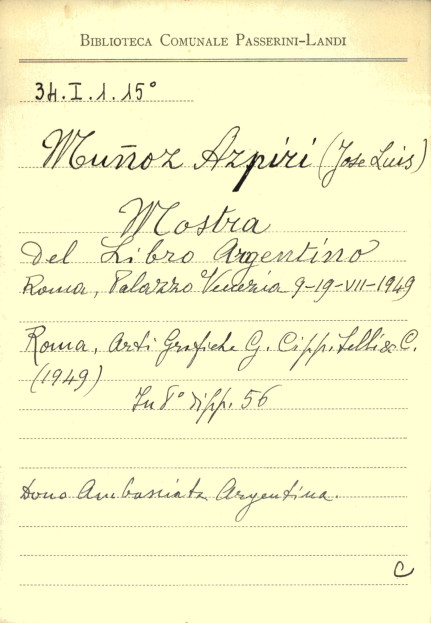 BIBLIOTECA COMUNALE PASSERINI-LANDI
34.I.1.15°
Muñoz Azpiri (Jose Luis)
Mostra
del Libro Argentino
Roma, Palazzo Venezia 9-19-VII-1949
Roma, Arti Grafiche G. & C.
(1949)
In 8° di pp. 56
Dono Ambasciata Argentina.
C